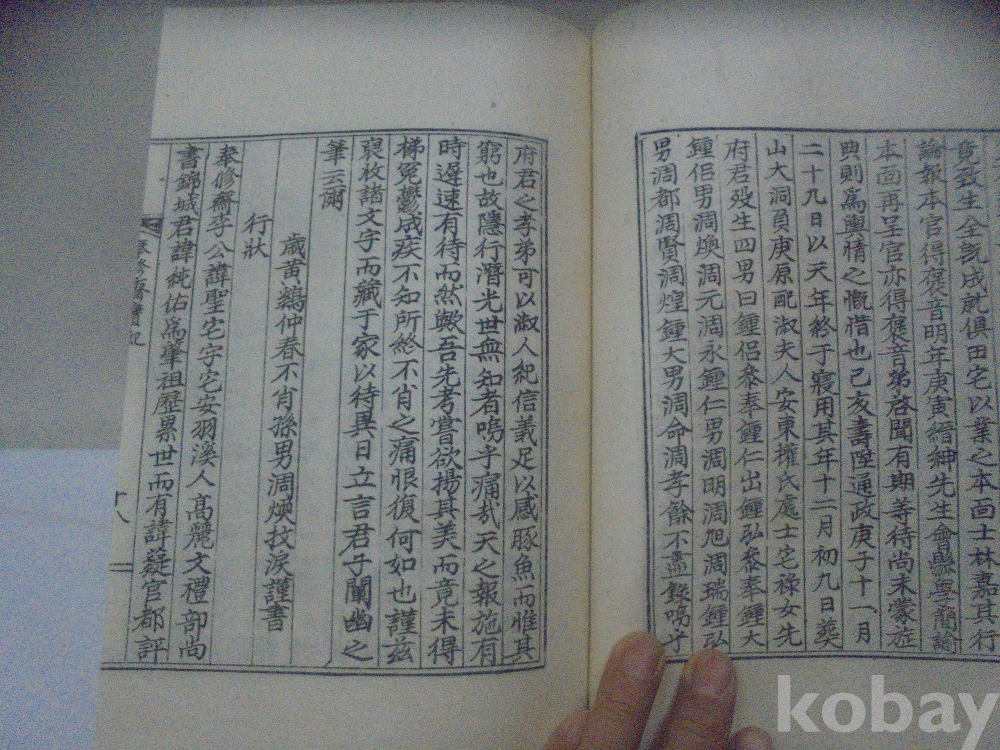 竟發生全旣成就俱田宅以業之本面士林嘉其行
論報本官得褒音明年庚寅縉紳先生會懸粤簡諭
本面再呈官亦得褒音第啓聞有期等待尚未蒙旌
典則爲輿情之慨惜也己亥壽陞通政庚子十一月
二十九日以天年終于寢用其年十二月初九日葬
山大洞負庚原配淑夫人安東權氏處士宅祿女先
府君歿生四男曰鍾侶叅奉鍾仁出鍾弘叅奉鍾大
鍾侶男淍煥淍元淍永鍾仁男淍明淍旭淍瑞鍾弘
男淍都淍賢淍煌鍾大男淍命淍孝餘不盡錄嗚乎
府君之孝弟可以淑人紀信義足以感豚魚而惟其
窮也故隱行潛光世無知者嗚乎痛哉天之報施有
時遲速有待而然歟吾先考嘗欲揚其美而竟未得
梯冤鬱成疾不知所終不肖之痛恨復何如也謹玆
裒枚諸文字而藏于家以待異日立言君子闡幽之
筆云爾
歲黃鷄仲春不肖孫男淍煥抆淚謹書
行狀
奉修齋李公諱聖宅字宅安羽溪人高麗文禮部尚
書錦城君諱純佑爲肇祖歷累世而有諱薿官都評
奉修齋實紀
十八
kobay